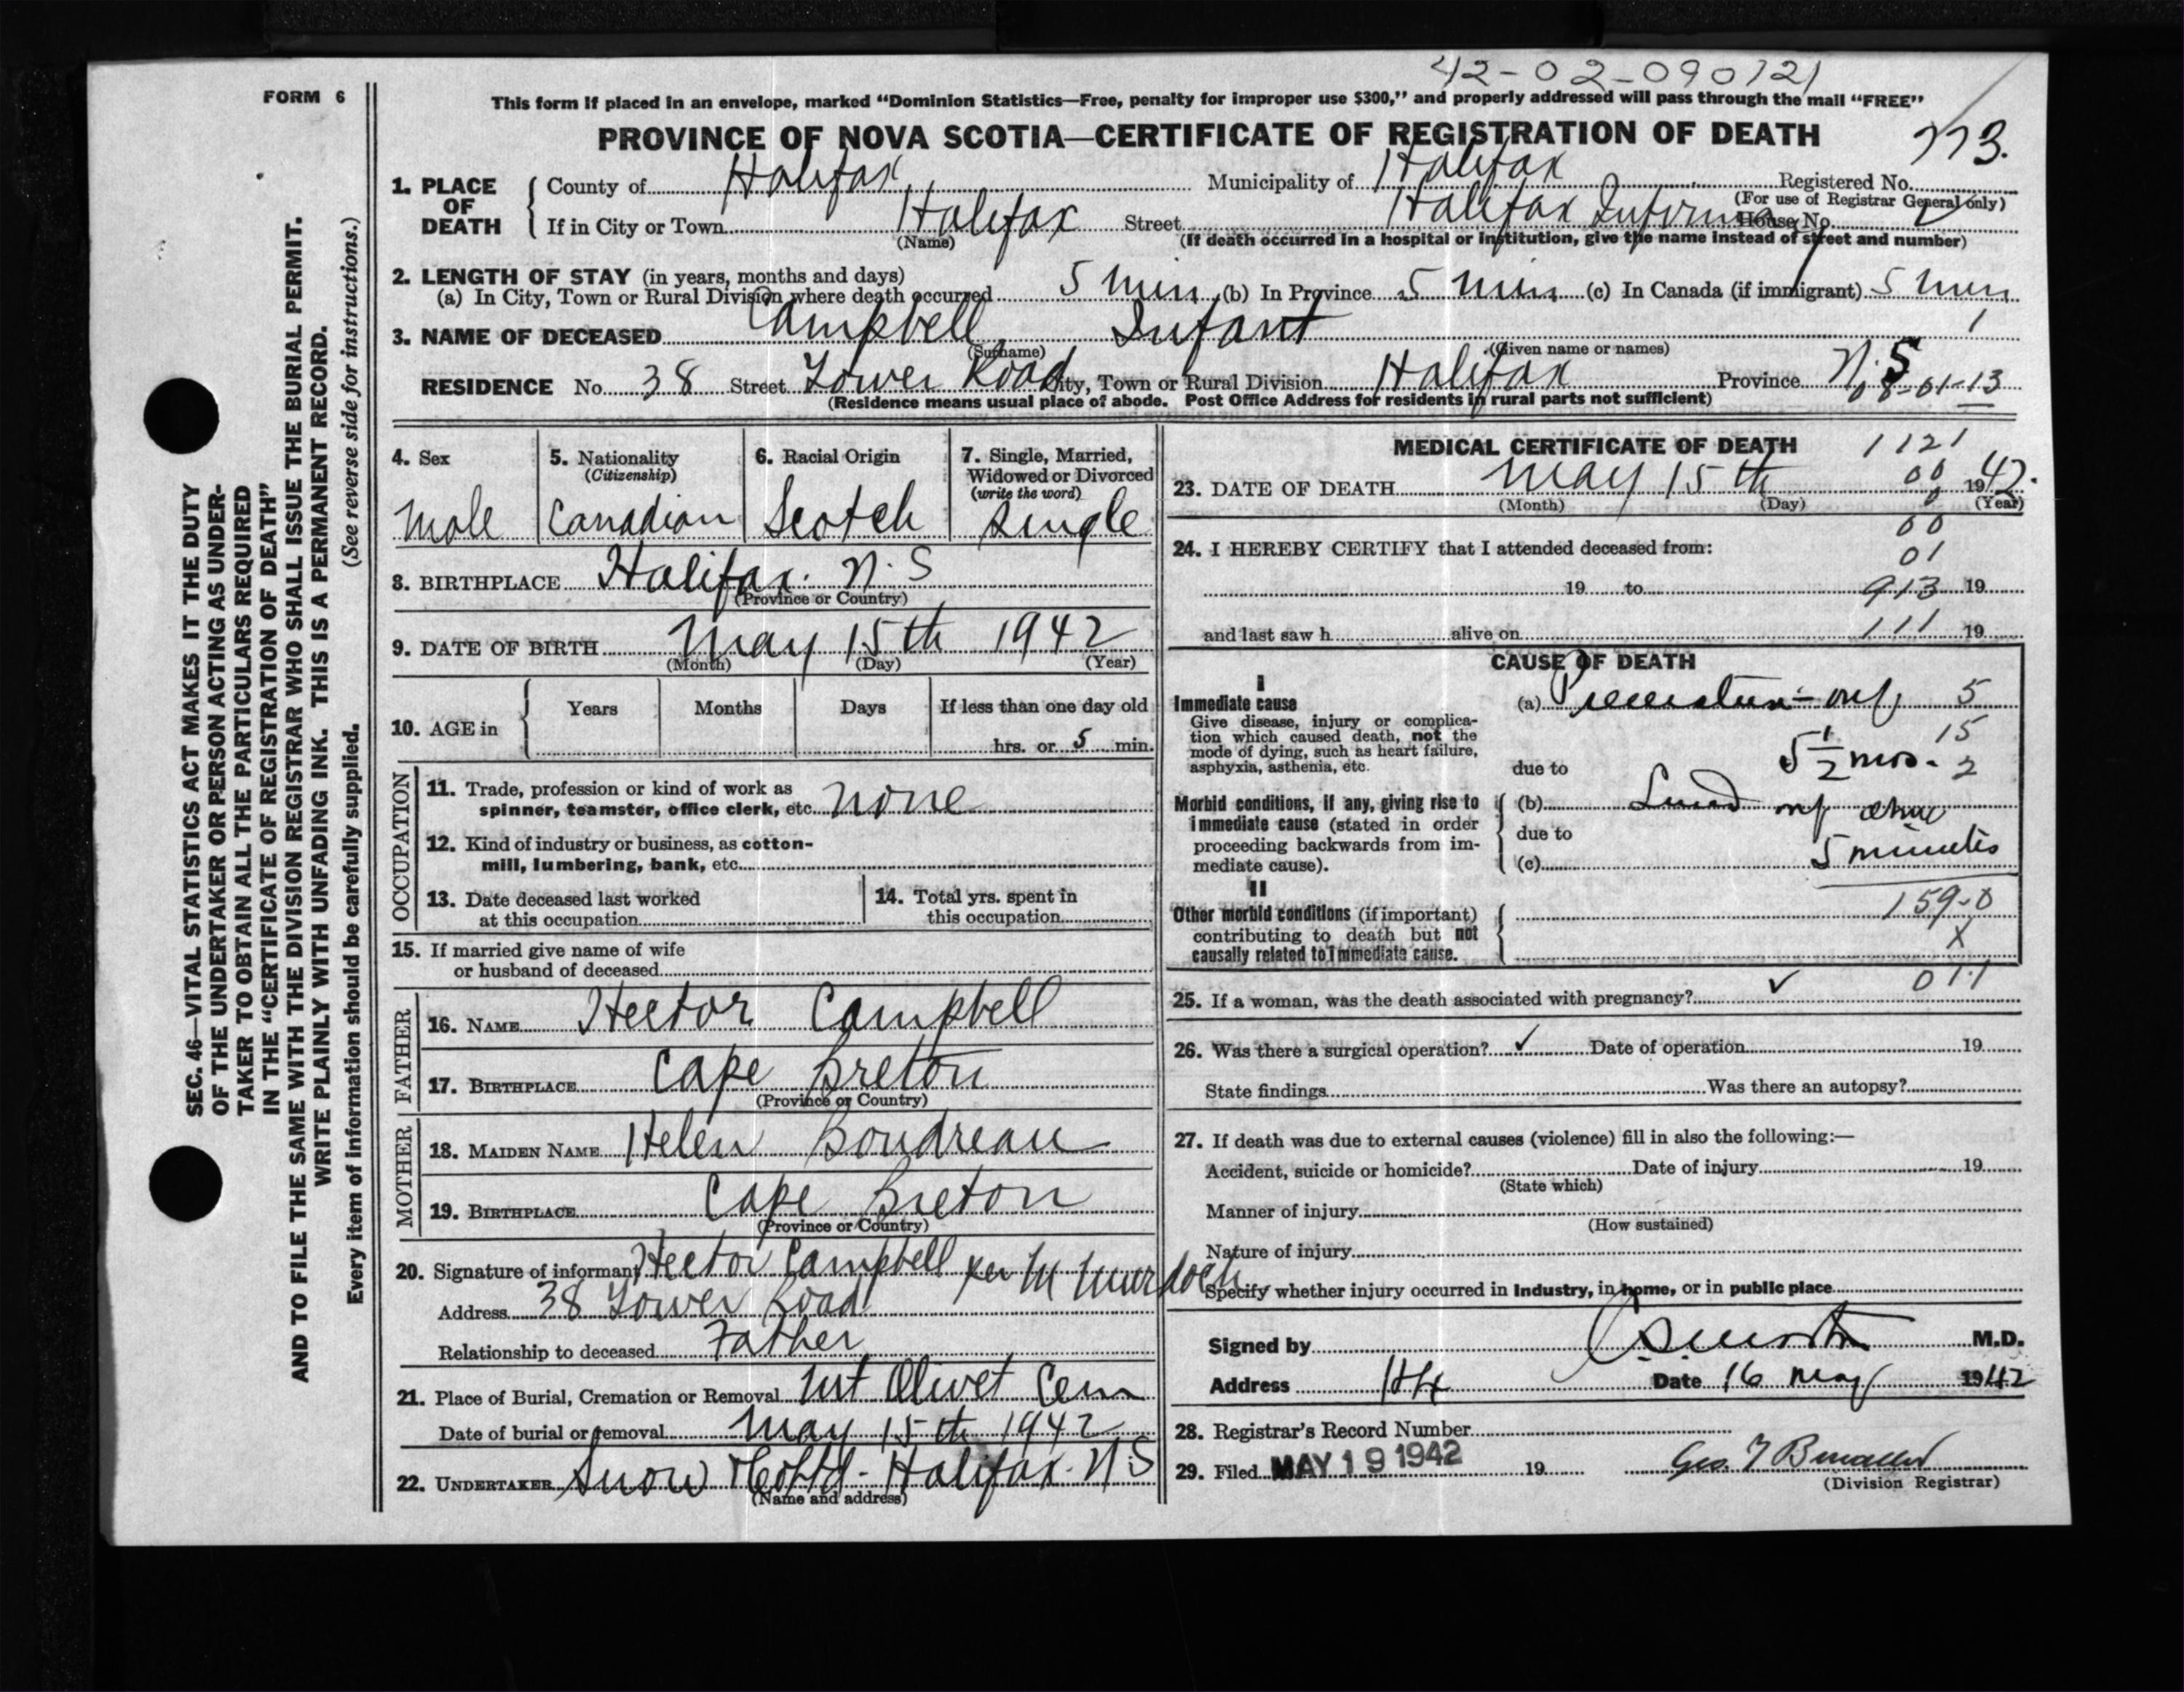 42-02-090121
FORM 6
This form if placed in an envelope, marked “Dominion Statistics—Free, penalty for improper use $300,” and properly addressed will pass through the mail “FREE”
PROVINCE OF NOVA SCOTIA—CERTIFICATE OF REGISTRATION OF DEATH
773.
1. PLACE OF DEATH
County of Halifax Municipality of Halifax Registered No.
(For use of Registrar General only)
If in City or Town Halifax Street Halifax Infirmary House No.
(Name) (If death occurred in a hospital or institution, give the name instead of street and number)
2. LENGTH OF STAY (in years, months and days)
(a) In City, Town or Rural Division where death occurred 5 min (b) In Province 5 min (c) In Canada (if immigrant) 5 min
3. NAME OF DECEASED Campbell Infant 1
(Surname) (Given name or names)
RESIDENCE No. 38 Street Lower Road City, Town or Rural Division Halifax Province N.S
08-01-13
(Residence means usual place of abode. Post Office Address for residents in rural parts not sufficient)
4. Sex
Male
5. Nationality
(Citizenship)
Canadian
6. Racial Origin
Scotch
7. Single, Married,
Widowed or Divorced
(write the word)
Single
8. BIRTHPLACE Halifax. N.S
(Province or Country)
9. DATE OF BIRTH May 15th 1942
(Month) (Day) (Year)
10. AGE in Years Months Days If less than one day old
hrs. or 5 min.
OCCUPATION
11. Trade, profession or kind of work as
spinner, teamster, office clerk, etc. none
12. Kind of industry or business, as cotton-
mill, lumbering, bank, etc.
13. Date deceased last worked
at this occupation
14. Total yrs. spent in
this occupation
15. If married give name of wife
or husband of deceased
FATHER
16. NAME Hector Campbell
17. BIRTHPLACE Cape Breton
(Province or Country)
MOTHER
18. MAIDEN NAME Helen Boudreau
19. BIRTHPLACE Cape Breton
(Province or Country)
20. Signature of informant Hector Campbell per M Murdoch
Address 38 Lower Road
Relationship to deceased Father
21. Place of Burial, Cremation or Removal Mt Olivet Cem
Date of burial or removal May 15th 1942
22. UNDERTAKER Snow & Co Ltd - Halifax. N.S
(Name and address)
MEDICAL CERTIFICATE OF DEATH
1121
23. DATE OF DEATH May 15th 00 1942.
(Month) (Day) 0 (Year)
00
24. I HEREBY CERTIFY that I attended deceased from:
01
19 to 913 19
and last saw h alive on 111 19
CAUSE OF DEATH
I
Immediate cause
Give disease, injury or complica-
tion which caused death, not the
mode of dying, such as heart failure,
asphyxia, asthenia, etc.
(a) 5
15
due to 5 1/2 mos. 2
Morbid conditions, if any, giving rise to
immediate cause (stated in order
proceeding backwards from im-
mediate cause).
(b) Lived
due to
(c) 5 minutes
II
Other morbid conditions (if important)
contributing to death but not
causally related to immediate cause.
159-0
X
011
25. If a woman, was the death associated with pregnancy? ✓
26. Was there a surgical operation? ✓ Date of operation 19
State findings Was there an autopsy?
27. If death was due to external causes (violence) fill in also the following:—
Accident, suicide or homicide? Date of injury 19
(State which)
Manner of injury
(How sustained)
Nature of injury
Specify whether injury occurred in Industry, in home, or in public place
Signed by M.D.
Address Hfx Date 16 May 1942
28. Registrar's Record Number
29. Filed MAY 19 1942 19
(Division Registrar)
SEC. 46—VITAL STATISTICS ACT MAKES IT THE DUTY
OF THE UNDERTAKER OR PERSON ACTING AS UNDER-
TAKER TO OBTAIN ALL THE PARTICULARS REQUIRED
IN THE “CERTIFICATE OF REGISTRATION OF DEATH”
AND TO FILE THE SAME WITH THE DIVISION REGISTRAR WHO SHALL ISSUE THE BURIAL PERMIT.
WRITE PLAINLY WITH UNFADING INK. THIS IS A PERMANENT RECORD.
Every item of information should be carefully supplied. (See reverse side for instructions.)